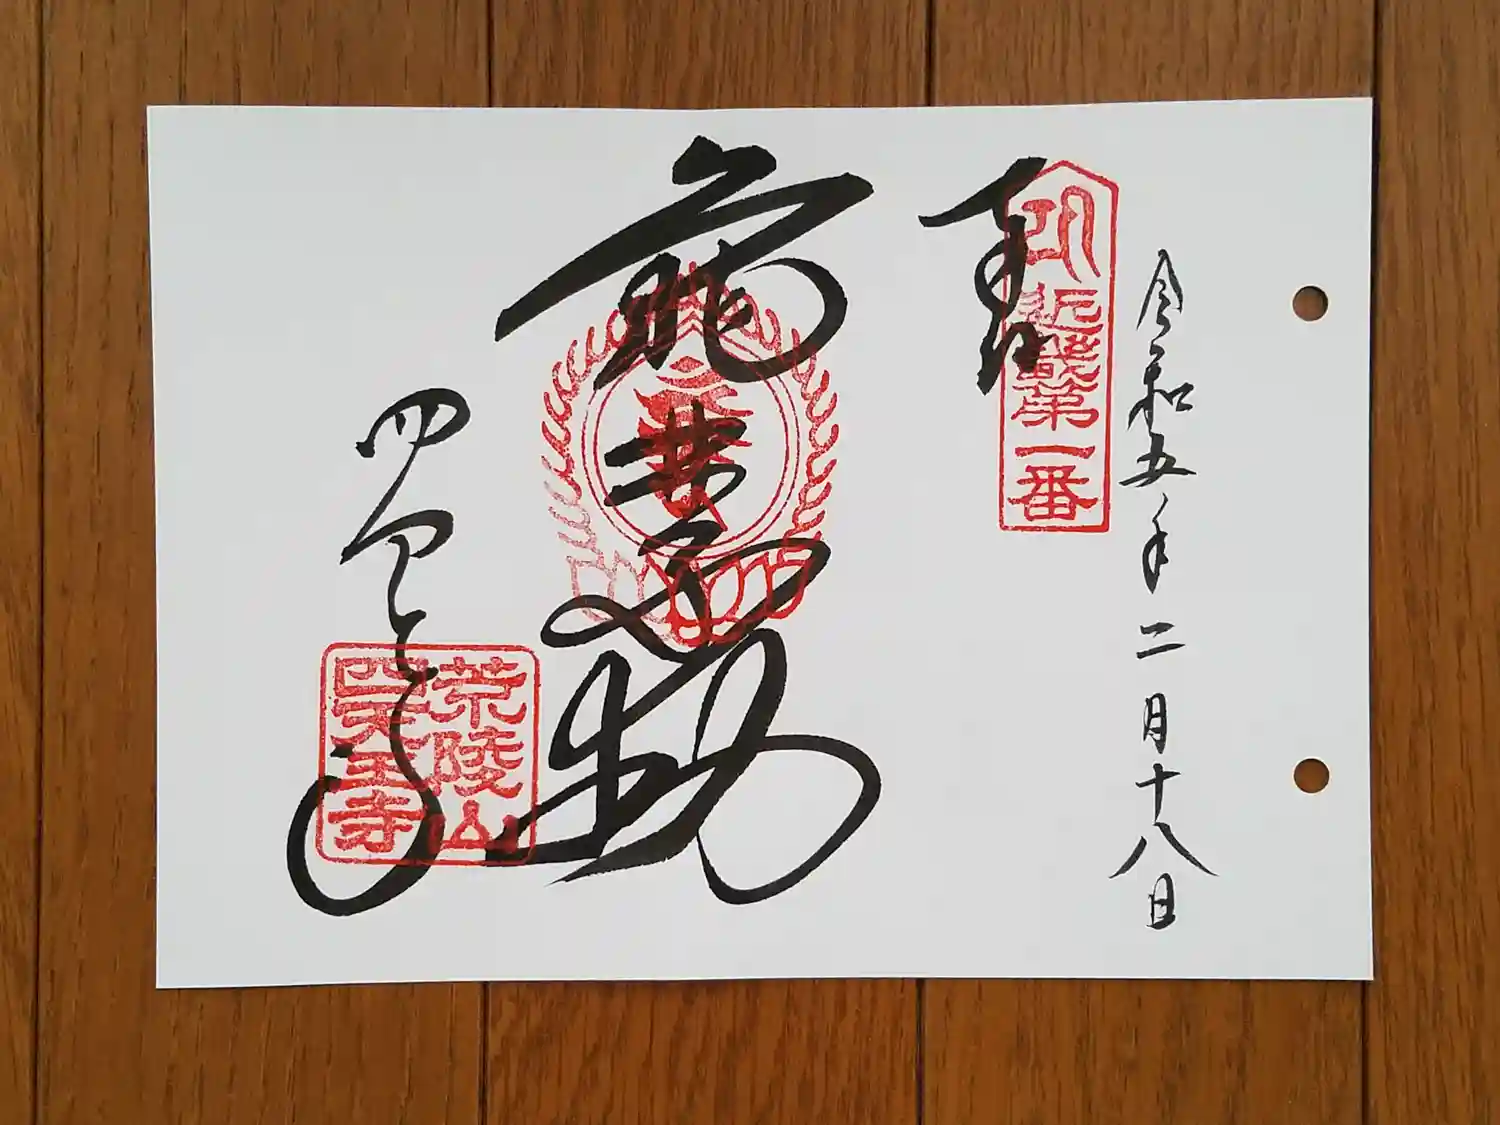 令和五年二月十八日
奉拝
近畿第一番
亀井不動
四天王寺
荒陵山
四天王寺